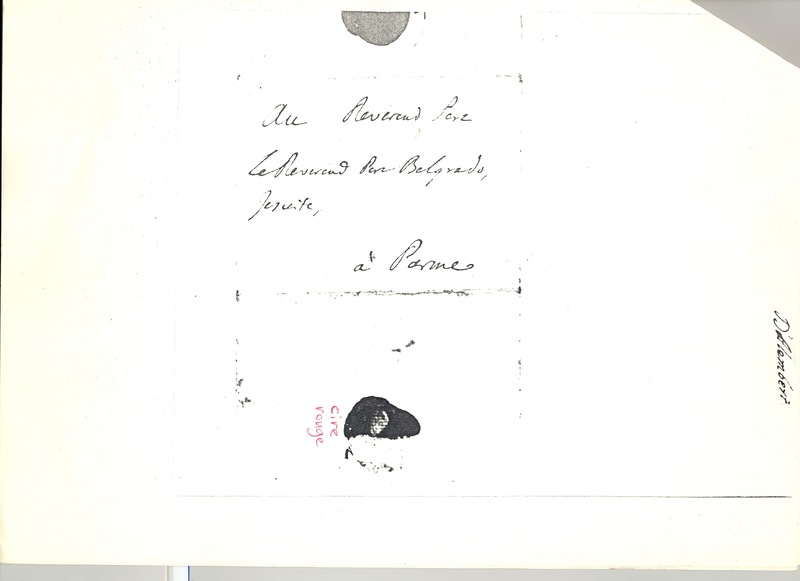 Au Reverend Pere
Le Reverend Pere Belgrado,
Jesuite,
à Parme
cire
rouge
D'Alembert